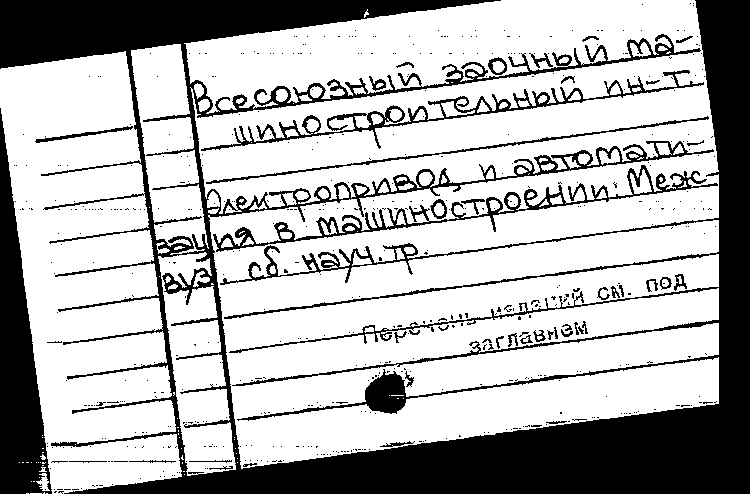 Всесоюзный заочный ма-
шиностроительный ин-т.
Электропривод и автомати-
зация в машиностроении: Меж-
вуз. сб. науч. тр.
Перечень изданий см. под
заглавием